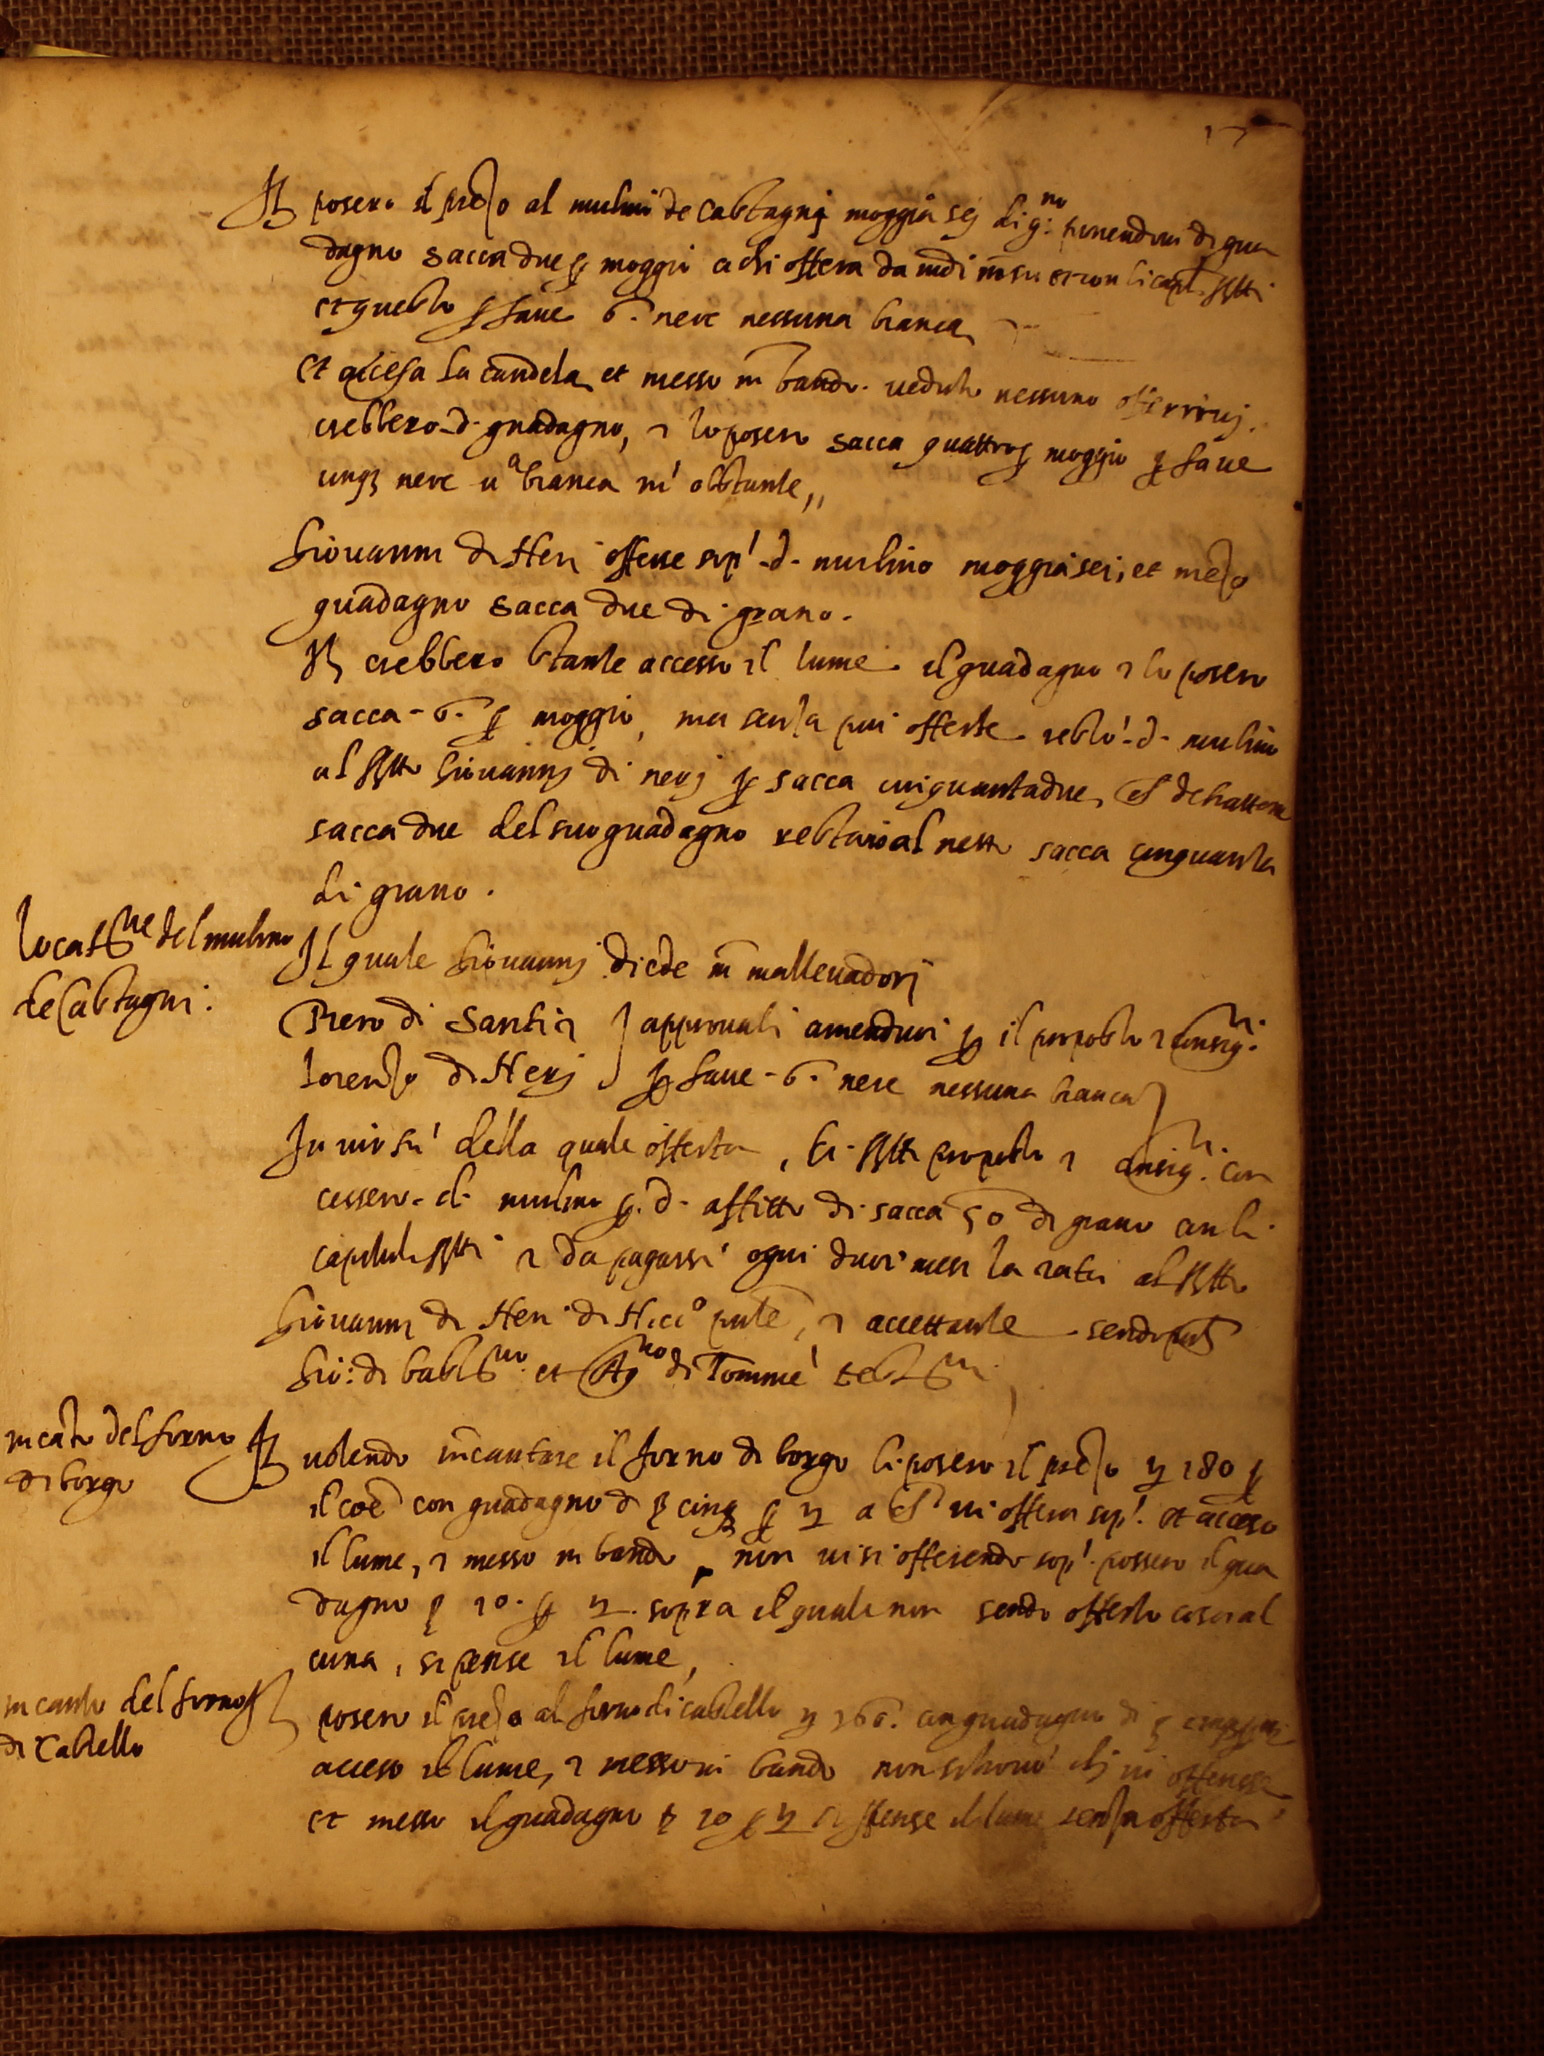 17
It posero il prezo al mulino de Castagni moggia sej di g.no ponendovi di gua
dagno sacca due p moggio a chi offera da indi in su et con li capli ssti
et questo p fave 6. nere nessuna bianca
et accesa la candela et messo in bando. veduto nessuno offerirvj.
crebbero d. guadagno, et lo posero sacca quattro p moggio p fave
cinq nere una bianca n' obstante,,
Giovanni di Neri offerse sop' d. mulino moggia sei, et mezo
guadagno sacca due di grano.
It crebbero stante accesso il lume il guadagno et lo posero
sacca 6. p moggio, ma senza piu offerte restò d. mulino
al ssto Giovannj di nerj p sacca cinquantadue, che detrattone
sacca due del suo guadagno restano al netto sacca cinquanta
di grano.
locatne del mulino
de Castagni:
Il quale Giovannj diede in mallevadorj
Piero di Santi et } approvati amenduoi p il proposto et consig.ri
lorenzo di Nerj } p fave 6. nere nessuna bianca
In virtù della quale offerta, li ssti proposto et consig.ri con
cessero d. mulino p d. affitto di sacca 50 di grano con li
capituli ssti et da pagarsi ogni duoi mesi la rata al ssto
Giovannj di Neri di N.cio pnte, et accettante sendo pnti
Gio: di bastno et Agno di Tommè testni
incato del forno
di borgo
It volendo incantare il forno di borgo li posero il prezo ₰ 180 p
il coe con guadagno di β cinq p ₰ a chi vi offera sop'. et acceso
il lume, et messo in bando, non vi si offerendo sop'. possero il gua
dagno β 10. p ₰. sopra il quale non sendo offerto cosa al
cuna, si spense il lume,
incanto del forno
di Castello
It posero il prezo al forno di castello ₰ 166. con guadagno di β cinq
acceso il lume, et messo in bando non si trovò chj vi offerisse
et messo il guadagno β 10 p ₰ si spense il lume senza offerta